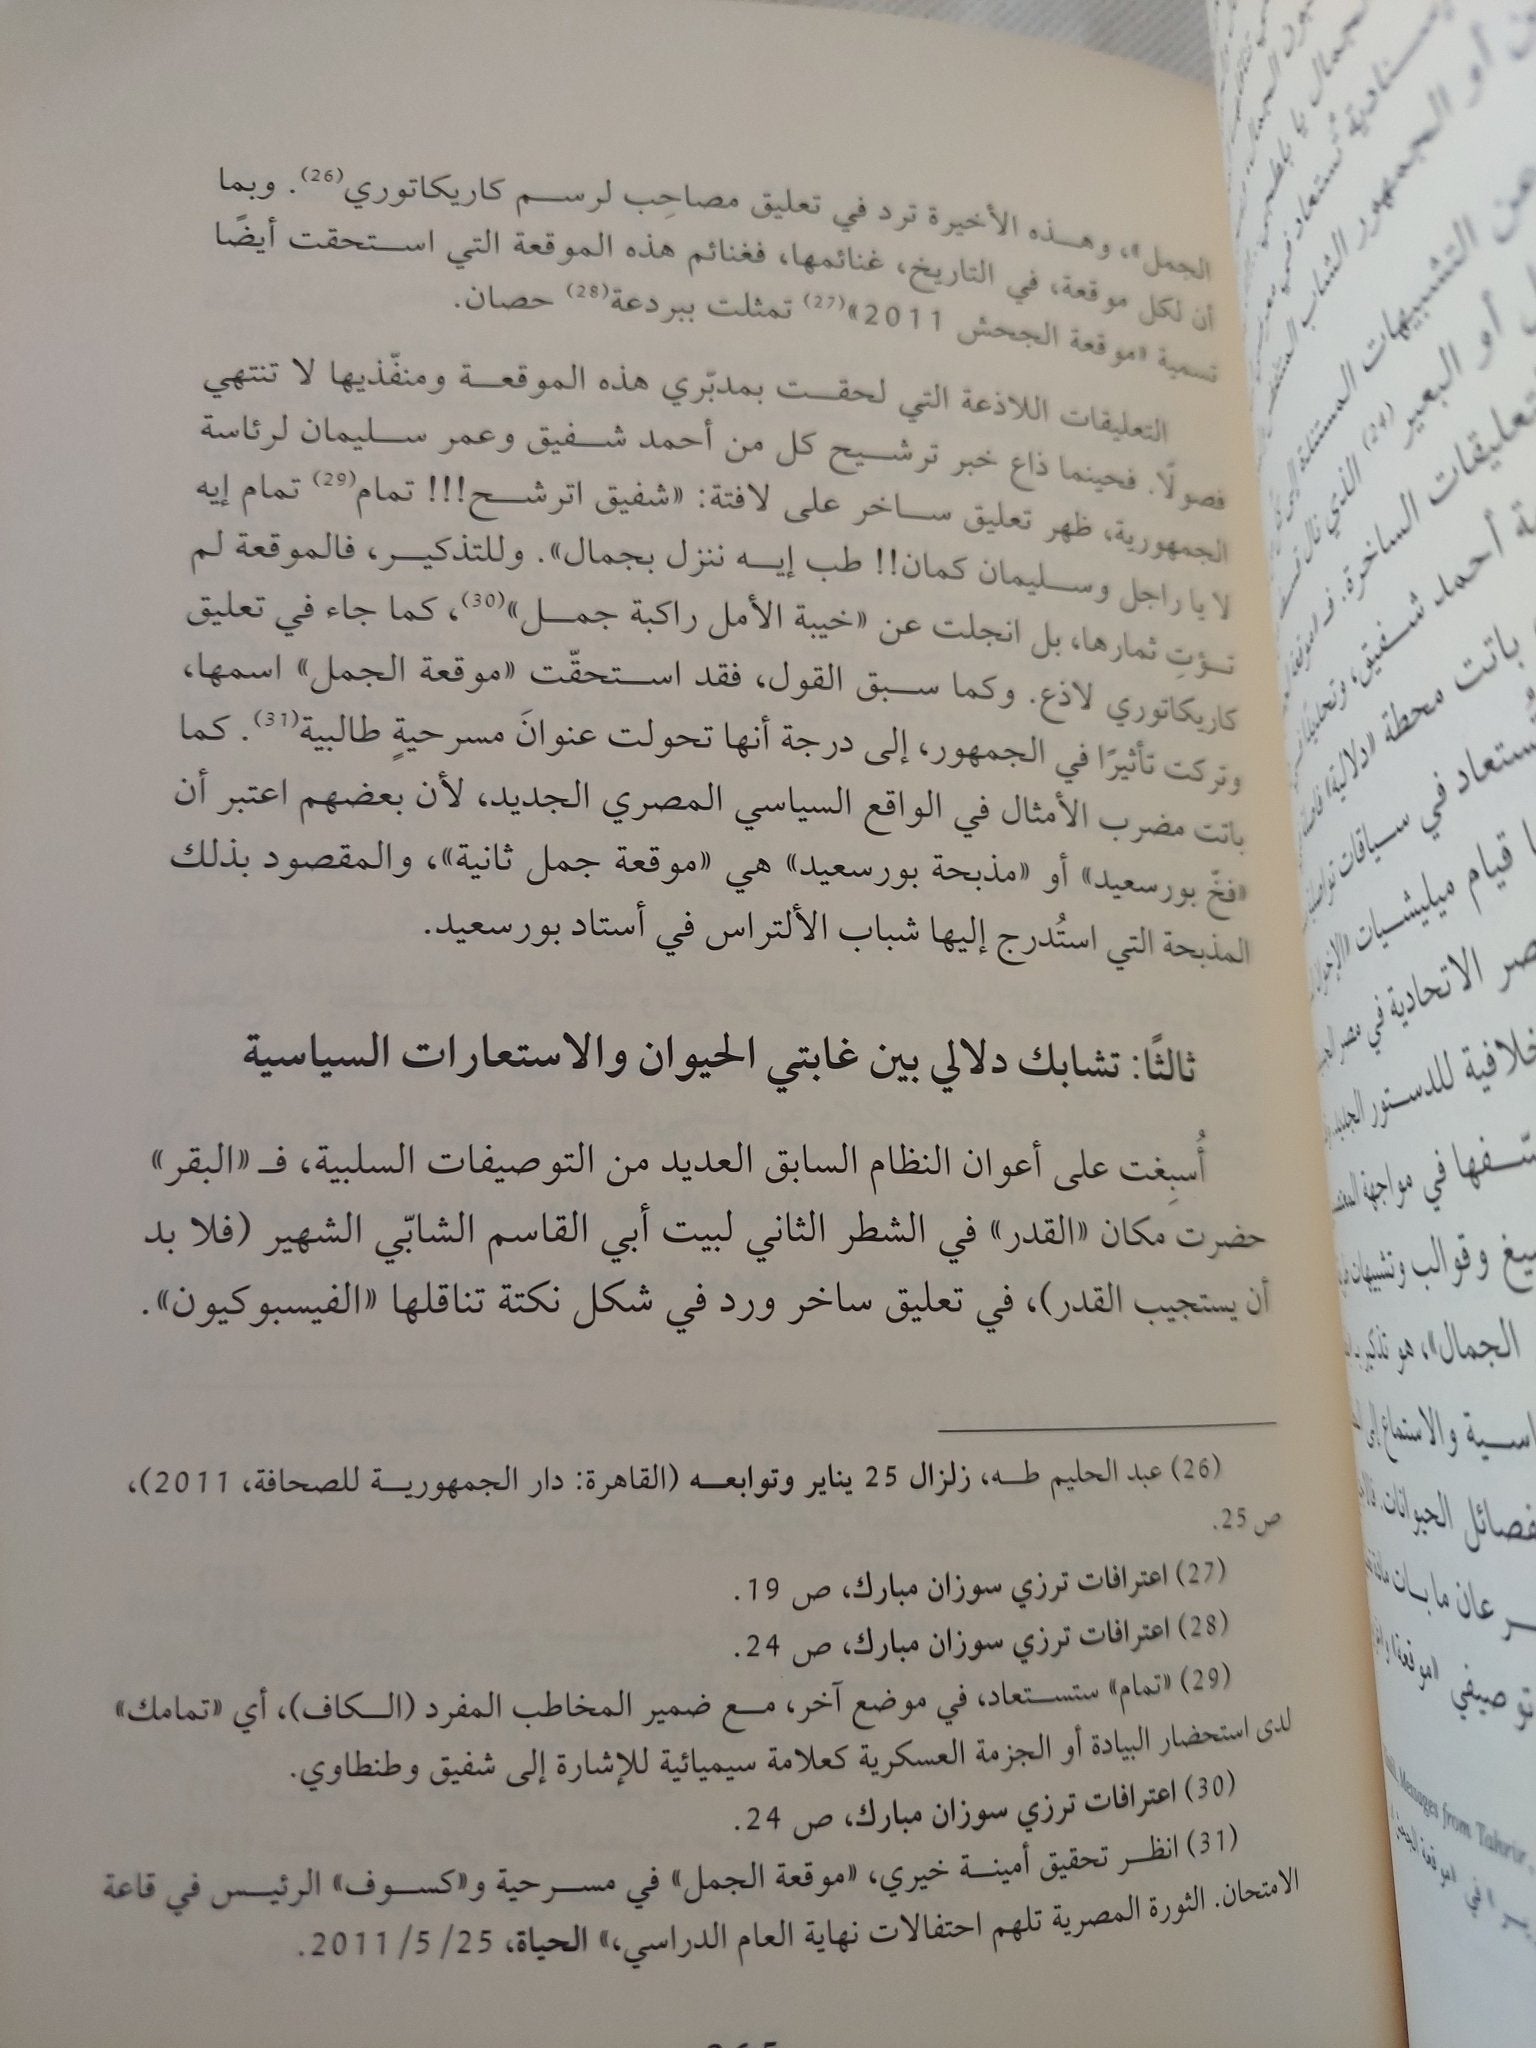 الجمل»، وهذه الأخيرة ترد في تعليق مصاحِب لرسم كاريكاتوري(26). وبما
أن لكل موقعة، في التاريخ، غنائمها، فغنائم هذه الموقعة التي استحقت أيضًا
تسمية «موقعة الجحش 2011»(27) تمثلت ببردعة(28) حصان.
التعليقات اللاذعة التي لحقت بمدبّري هذه الموقعة ومنفّذيها لا تنتهي
فصولًا. فحينما ذاع خبر ترشيح كل من أحمد شفيق وعمر سليمان لرئاسة
الجمهورية، ظهر تعليق ساخر على لافتة: «شفيق اترشح!!! تمام(29) تمام إيه
لا يا راجل وسليمان كمان!! طب إيه ننزل بجمال». وللتذكير، فالموقعة لم
تؤتِ ثمارها، بل انجلت عن «خيبة الأمل راكبة جمل»(30)، كما جاء في تعليق
كاريكاتوري لاذع. وكما سبق القول، فقد استحقّت «موقعة الجمل» اسمها،
وتركت تأثيرًا في الجمهور، إلى درجة أنها تحولت عنوانَ مسرحيةٍ طالبية(31). كما
باتت مضرب الأمثال في الواقع السياسي المصري الجديد، لأن بعضهم اعتبر أن
«فخّ بورسعيد» أو «مذبحة بورسعيد» هي «موقعة جمل ثانية»، والمقصود بذلك
المذبحة التي استُدرج إليها شباب الألتراس في أستاد بورسعيد.
ثالثًا: تشابك دلالي بين غابتي الحيوان والاستعارات السياسية
أُسبِغت على أعوان النظام السابق العديد من التوصيفات السلبية، فـ «البقر»
حضرت مكان «القدر» في الشطر الثاني لبيت أبي القاسم الشابّي الشهير (فلا بد
أن يستجيب القدر)، في تعليق ساخر ورد في شكل نكتة تناقلها «الفيسبوكيون».
(26) عبد الحليم طه، زلزال 25 يناير وتوابعه (القاهرة: دار الجمهورية للصحافة، 2011)،
ص 25.
(27) اعترافات ترزي سوزان مبارك، ص 19.
(28) اعترافات ترزي سوزان مبارك، ص 24.
(29) «تمام» ستستعاد، في موضع آخر، مع ضمير المخاطب المفرد (الكاف)، أي «تمامك»
لدى استحضار البيادة أو الجزمة العسكرية كعلامة سيميائية للإشارة إلى شفيق وطنطاوي.
(30) اعترافات ترزي سوزان مبارك، ص 24.
(31) انظر تحقيق أمينة خيري، «موقعة الجمل» في مسرحية و«كسوف» الرئيس في قاعة
الامتحان. الثورة المصرية تلهم احتفالات نهاية العام الدراسي،» الحياة، 25/5/2011.
أو الجمهور الشاب
من التشبيهات المستقاة
أو البعير (24) الذي نال
تعليقات الساخرة.
أحمد شفيق،
باتت محطة «دلالية»
تُستعاد في سياقات
قيام ميليشيات
الاتحادية في مصر
خلافية للدستور الجديد
في مواجهة
وقوالب وتشبيهات
الجمال»، هو تذكير
والاستماع إلى
فصائل الحيوانات.
ما بات
توصيفي «موقعة»
Messages from Tahrir
في «موقعة